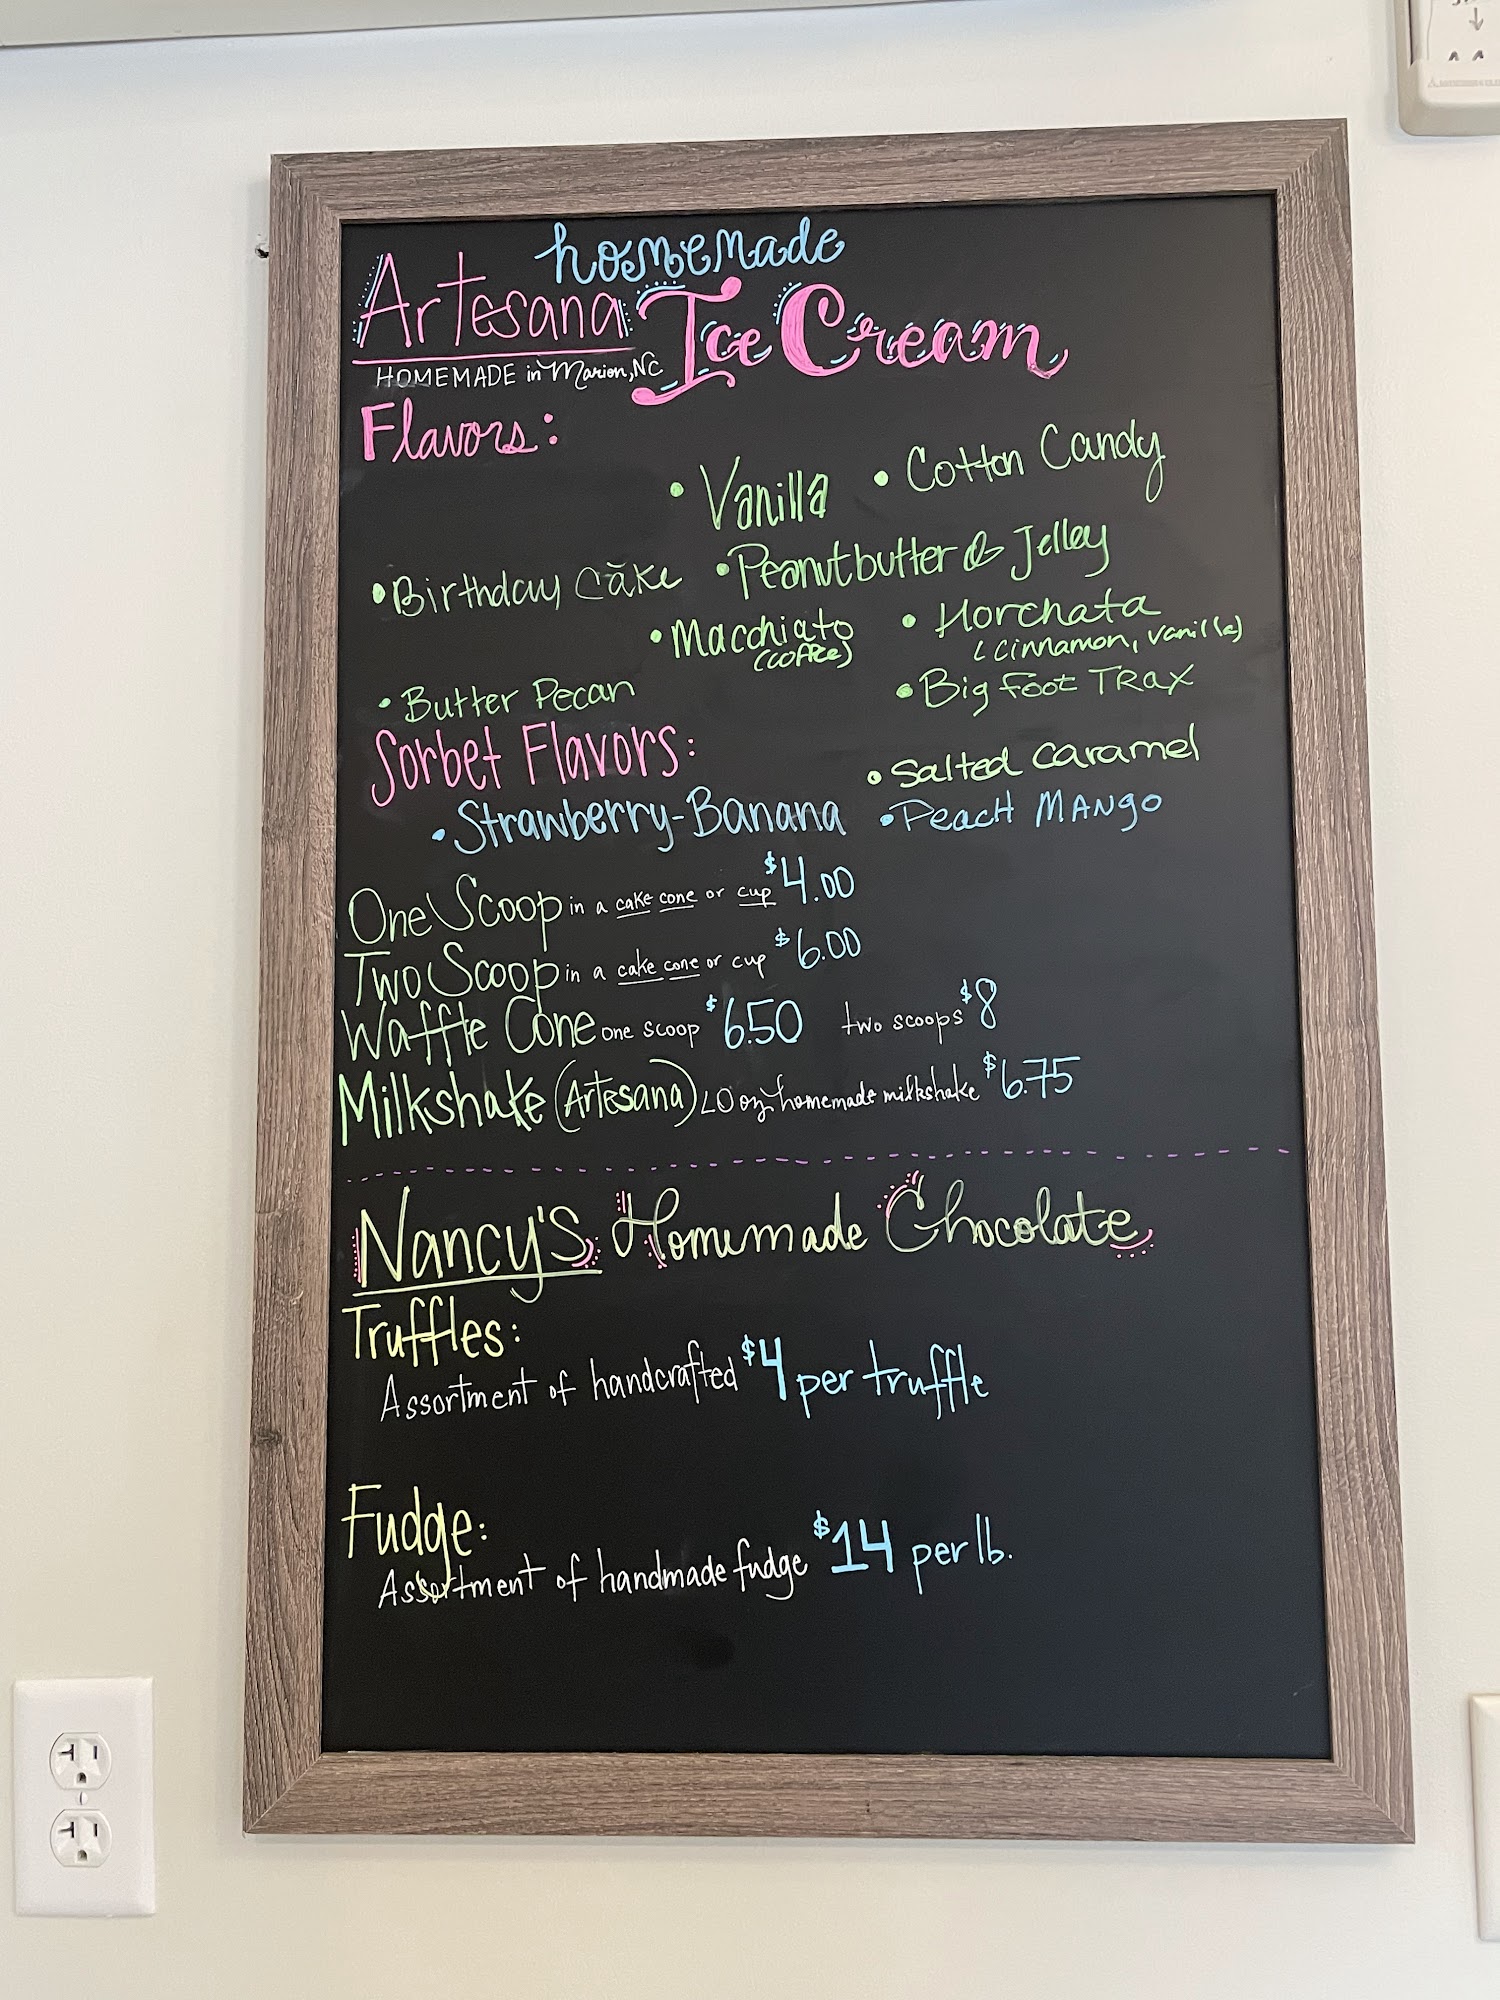 homemade
Artesana Ice Cream
HOMEMADE in Marion, NC
Flavors:
• Vanilla • Cotton Candy
• Birthday Cake • Peanutbutter & Jelley
• Macchiato • Horchata
(coffee) (cinnamon, vanilla)
• Butter Pecan • Big Foot TRax
Sorbet Flavors: • Salted Caramel
• Strawberry-Banana • Peach Mango
One Scoop in a cake cone or cup $4.00
Two Scoop in a cake cone or cup $6.00
Waffle Cone one scoop $6.50 two scoops $8
Milkshake (Artesana) 20 oz homemade milkshake $6.75
Nancy's Homemade Chocolate
Truffles:
Assortment of handcrafted $4 per truffle
Fudge:
Assortment of handmade fudge $14 per lb.